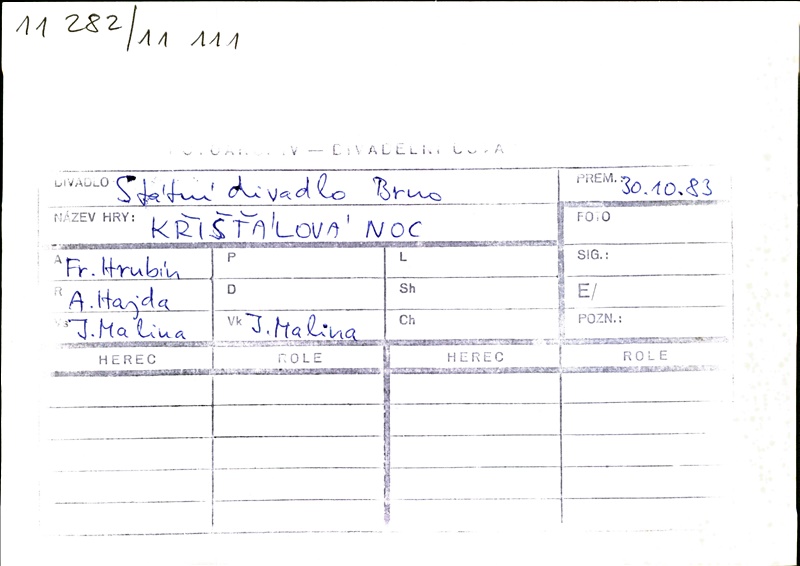 11 282/11 111
DIVADLO Státní divadlo Brno PREM. 30.10.83
NÁZEV HRY: KŘIŠŤÁLOVÁ NOC FOTO
A Fr. Hrubín P L SIG.:
R A. Hajda D Sh E/
J. Malina Vk J. Malina Ch POZN.:
HEREC ROLE HEREC ROLE